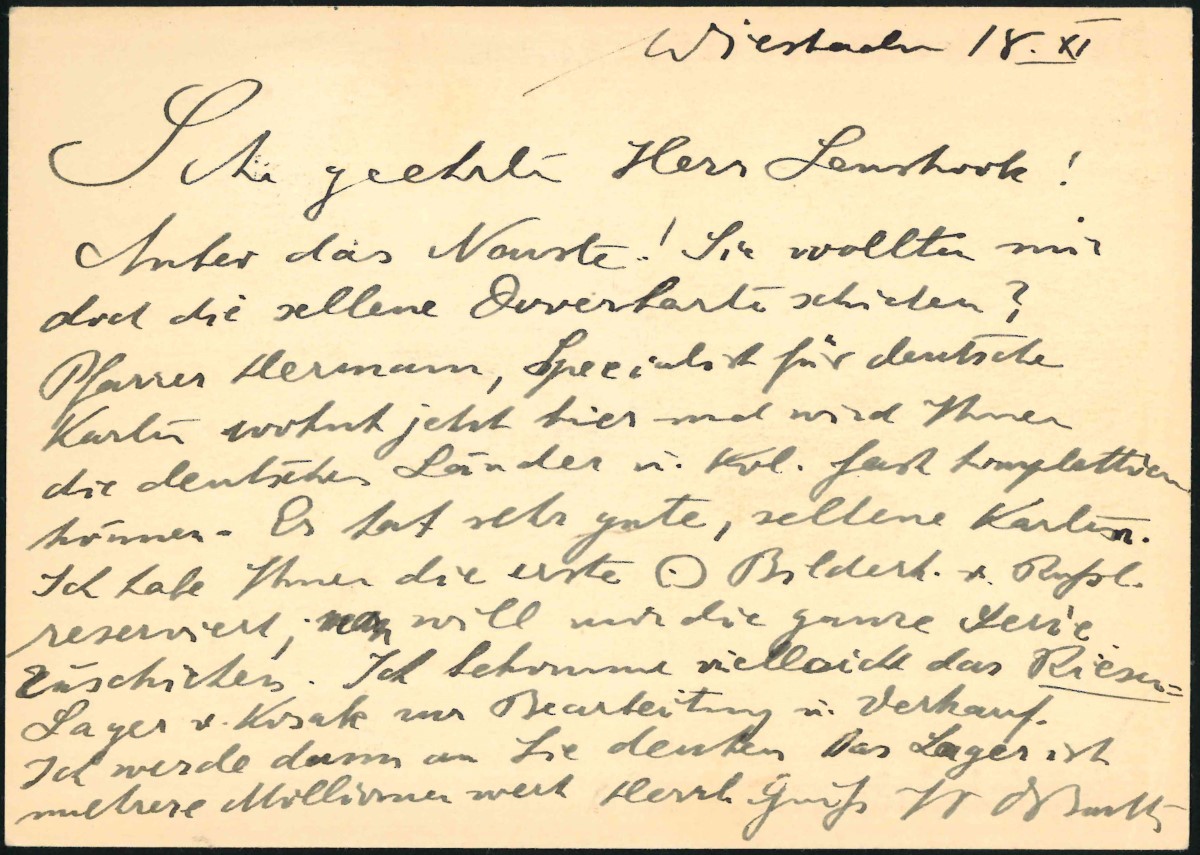 Wiesbaden 18. XI
Sehr geehrter Herr
Anbei das Neuste! Sie wollten mir
doch die seltene schicken?
Pfarrer Hermann, Specialist für deutsche
Karten wohnt jetzt hier und wird Ihnen
die deutschen Länder u. Kol. fast komplettieren
können. Er hat sehr gute, seltene Karten.
Ich habe Ihnen die erste Bilderk. v. Rußl.
reserviert, man will mir die ganze Serie
zuschicken. Ich bekomme vielleicht das Riesen=
Lager v. Kosack zur Bearbeitung u. Verkauf.
Ich werde dann an Sie denken Das Lager ist
mehrere Millionen wert Herzl. Gruß